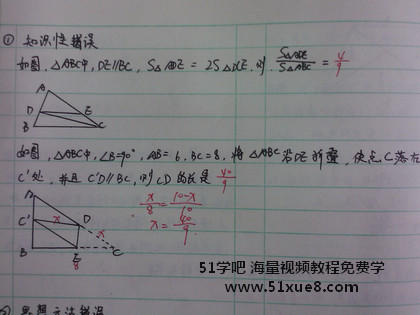 ① 知识性错误
如图,△ABC中,DE∥BC,S△ADE = 2S△DCE,则 S△ADE/S△ABC = 4/9
A
D E
B C
如图,△ABC中,∠B=90°,AB=6,BC=8,将△ABC沿DE折叠,使点C落在
C'处,并且C'D∥BC,则CD的长是 40/9
A
C' x D x
B E C
8
x/8 = 10-x/10
x = 40/9
51学吧 海量视频教程免费学
www.51xue8.com